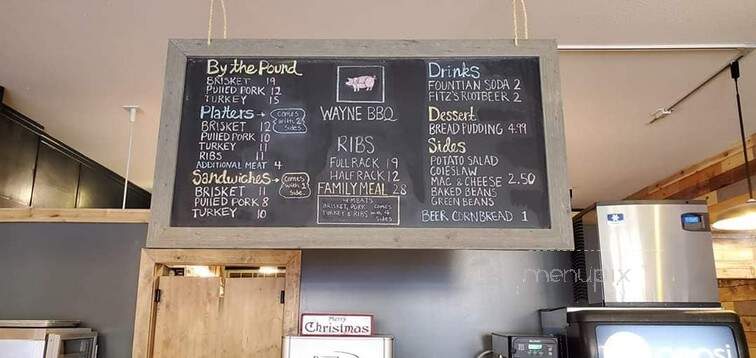 By the Pound
BRISKET 19
PULLED PORK 12
TURKEY 15
Platters → comes with 2 sides
BRISKET 12
PULLED PORK 10
TURKEY 11
RIBS 11
ADDITIONAL MEAT 4
Sandwiches → comes with 1 side
BRISKET 11
PULLED PORK 8
TURKEY 10
WAYNE BBQ
RIBS
FULL RACK 19
HALF RACK 12
FAMILY MEAL 28
4 MEATS
BRISKET, PORK
TURKEY & RIBS
comes with 4 sides
Drinks
FOUNTIAN SODA 2
FITZ'S ROOTBEER 2
Dessert
BREAD PUDDING 4.99
Sides
POTATO SALAD
COLESLAW
MAC & CHEESE 2.50
BAKED BEANS
GREEN BEANS
BEER CORNBREAD 1
menupix
Merry
Christmas
pepsi